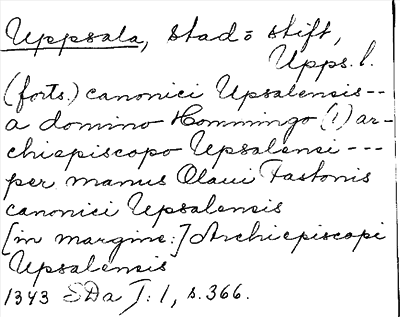 Uppsala, stad o stift,
Upps. l.
(forts.) canonici Upsalensis --
a domino Hommingo (!) ar-
chiepiscopo Upsalensi ---
per manus Olaui Fastonis
canonici Upsalensis
[in margine:] Archiepiscopi
Upsalensis
1343 SDa I: 1, s. 366.